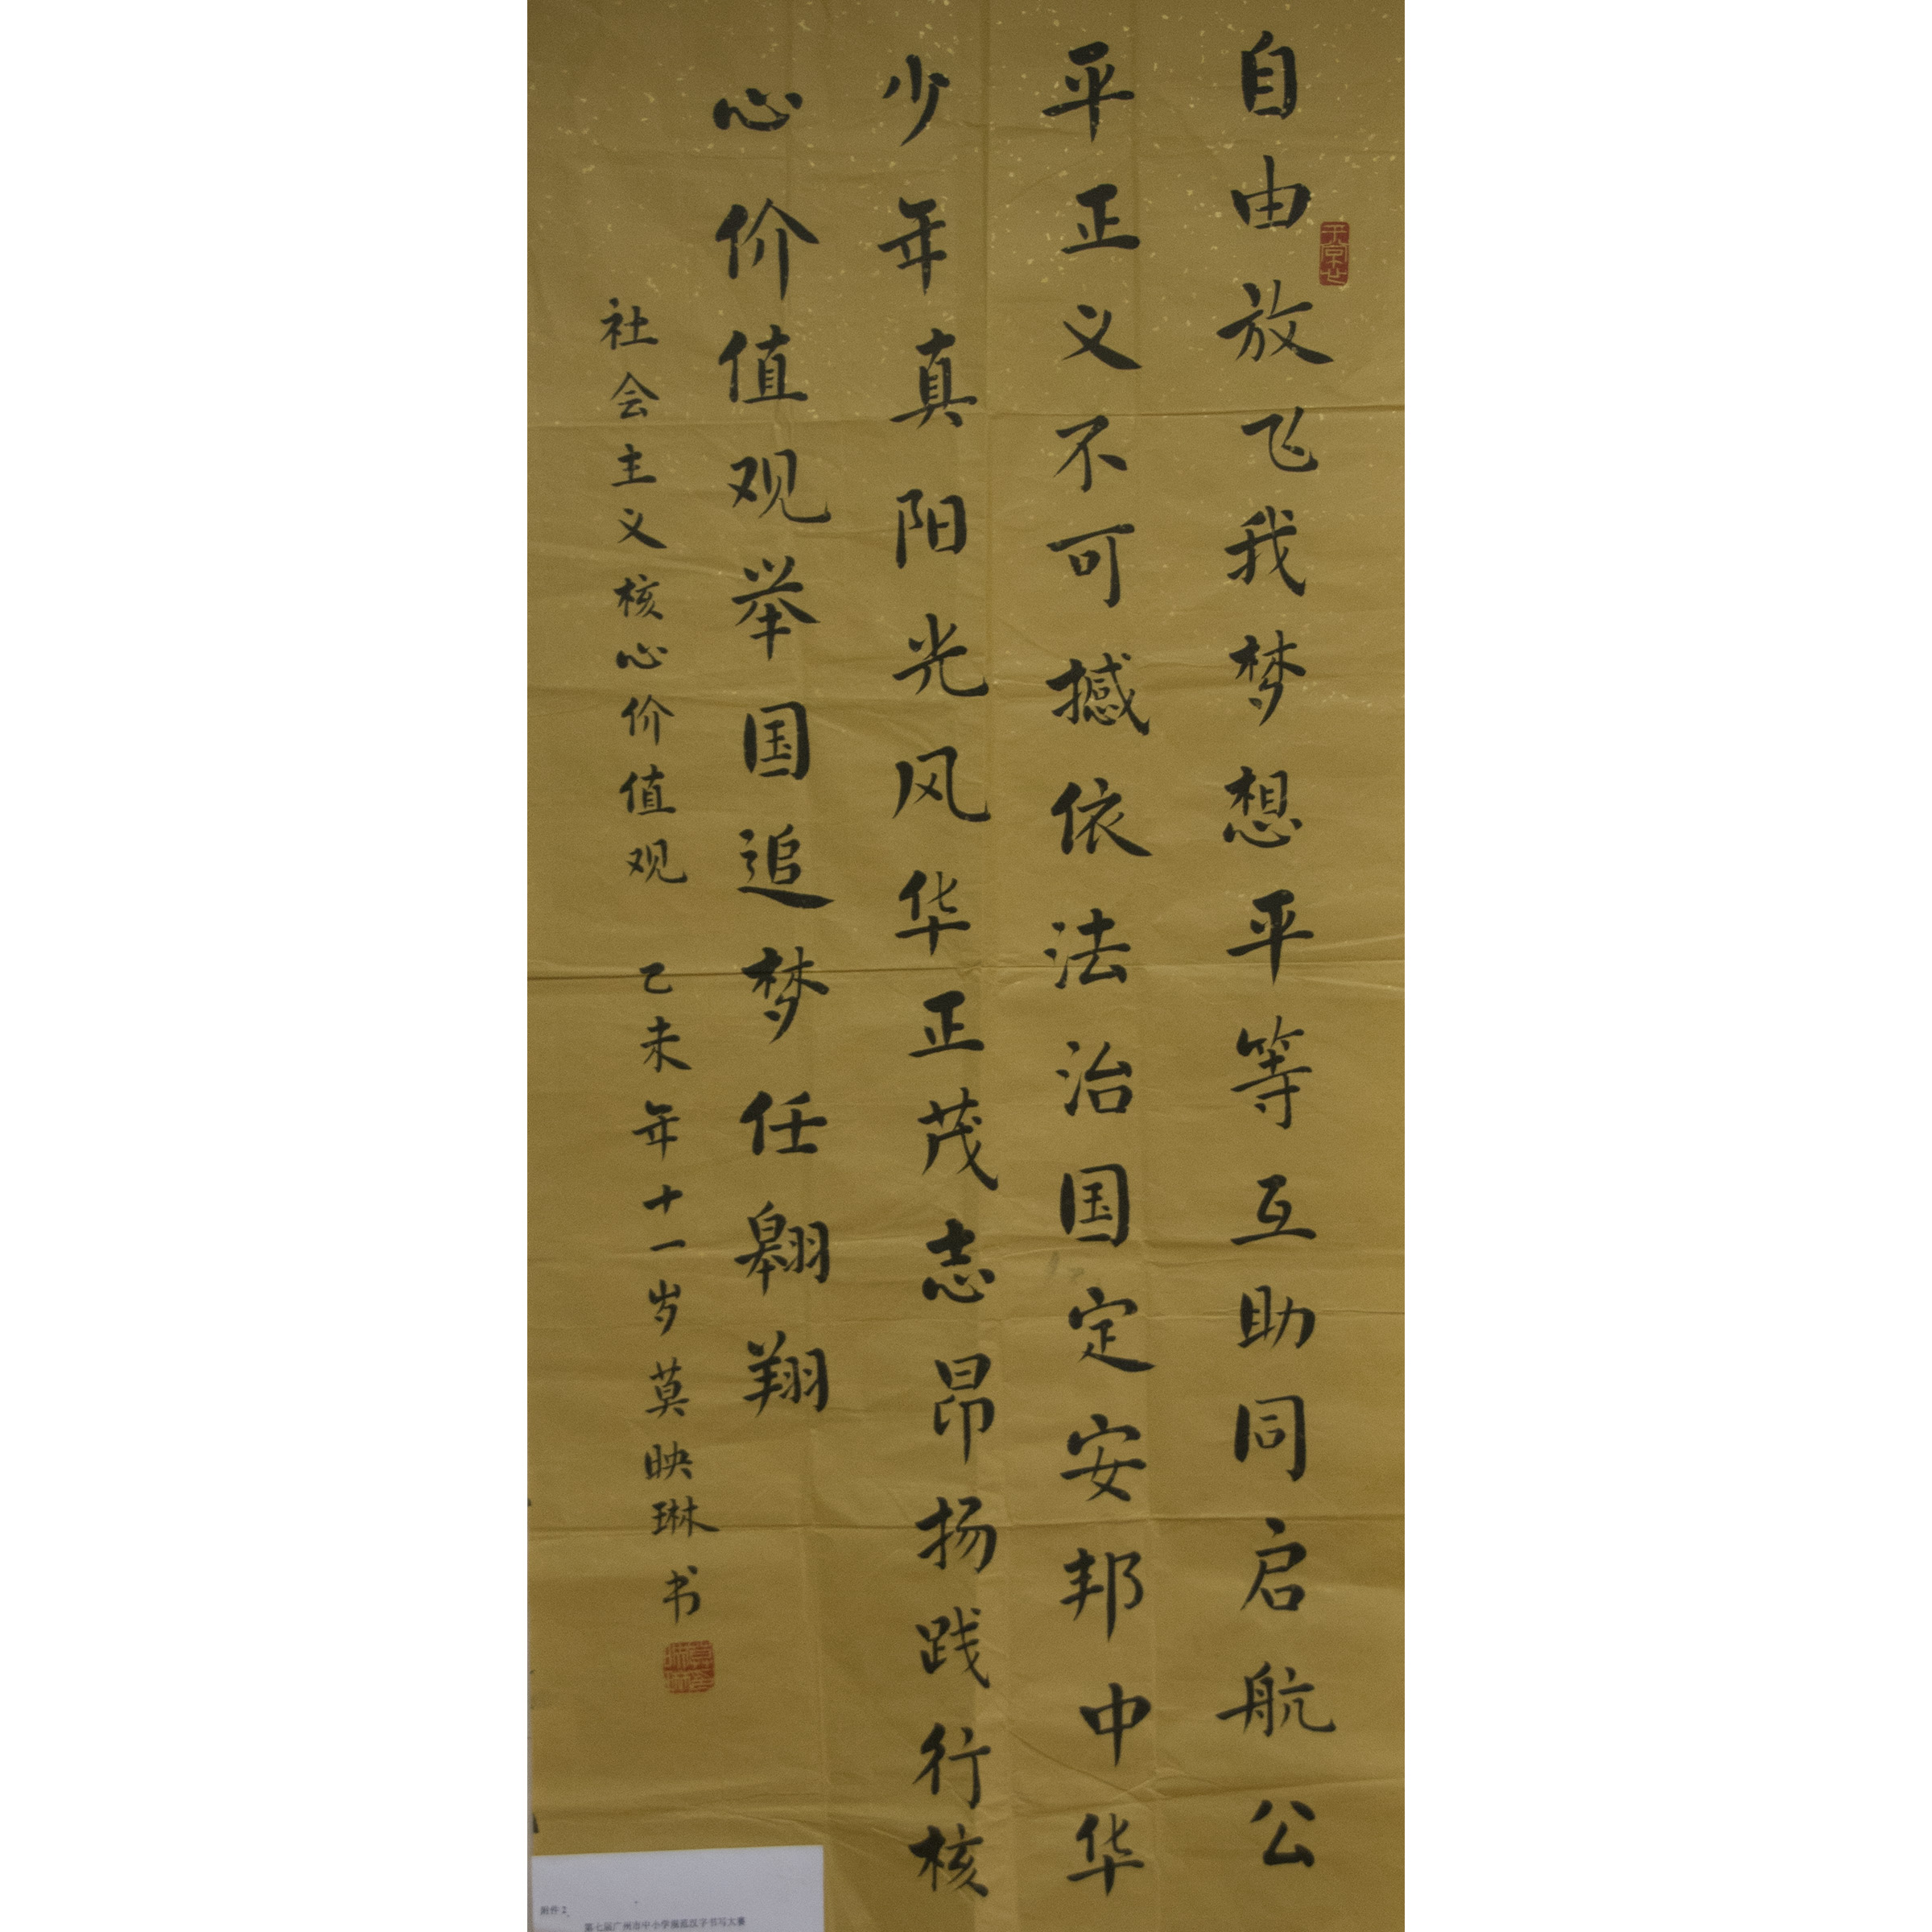 自由放飞我梦想平等互助同启航公
平正义不可撼依法治国定安邦中华
少年真阳光风华正茂志昂扬践行核
心价值观举国追梦任翱翔
社会主义核心价值观 乙未年十一岁莫映琳书
附件2
第七届广州市中小学规范汉字书写大赛